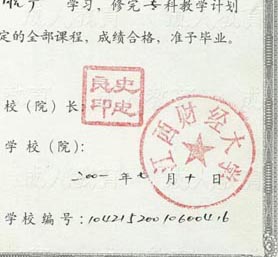 学习，修完专科教学计划
定的全部课程，成绩合格，准予毕业。
校（院）长
史忠良印
学校（院）：
江西财经大学
二〇〇一年七月十日
学校编号：10421520010600416